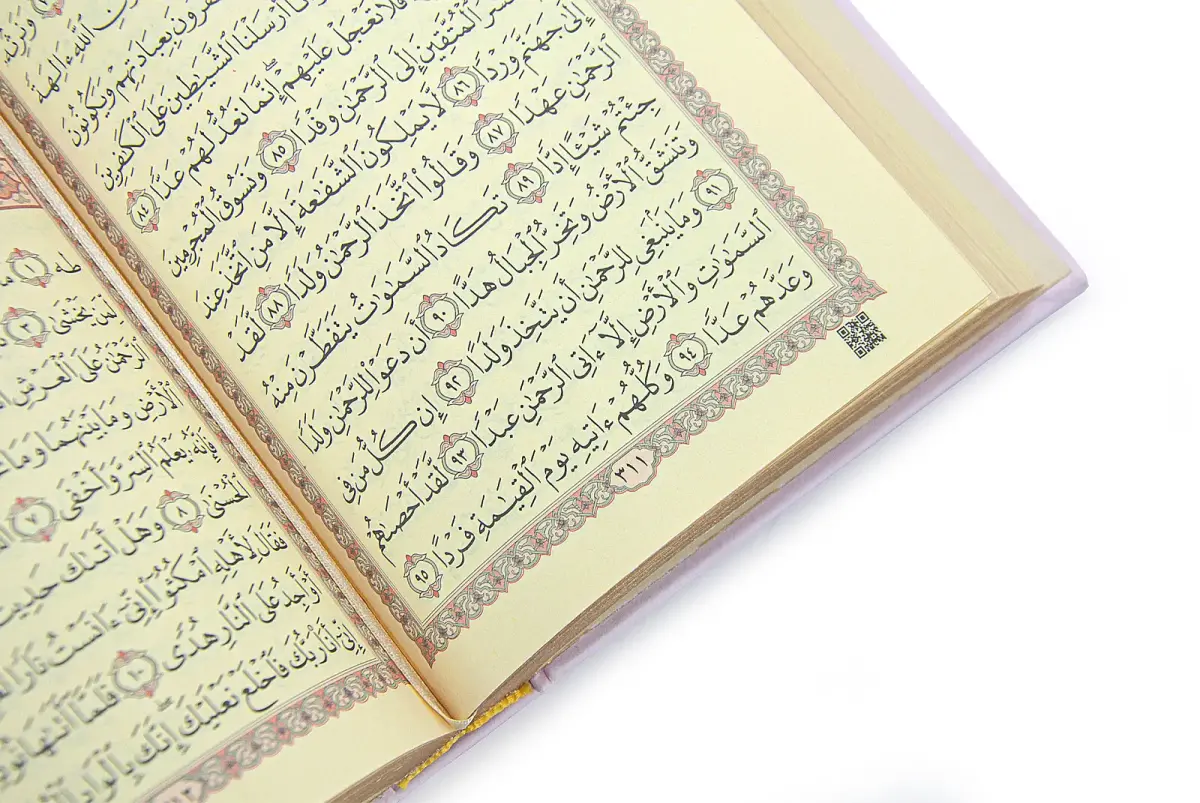 وَنَرِثُهُۥ
ٱللَّهِ ءَالِهَةً
سَيَكْفُرُونَ بِعِبَادَتِهِمْ وَيَكُونُونَ
أَرْسَلْنَا ٱلشَّيَٰطِينَ عَلَى ٱلْكَٰفِرِينَ
فَلَا تَعْجَلْ عَلَيْهِمْ ۖ إِنَّمَا نَعُدُّ لَهُمْ عَدًّا ٨٤
ٱلْمُتَّقِينَ إِلَى ٱلرَّحْمَٰنِ وَفْدًا ٨٥ وَنَسُوقُ ٱلْمُجْرِمِينَ
إِلَىٰ جَهَنَّمَ وِرْدًا ٨٦ لَّا يَمْلِكُونَ ٱلشَّفَٰعَةَ إِلَّا مَنِ ٱتَّخَذَ عِندَ
ٱلرَّحْمَٰنِ عَهْدًا ٨٧ وَقَالُوا۟ ٱتَّخَذَ ٱلرَّحْمَٰنُ وَلَدًا ٨٨ لَّقَدْ
جِئْتُمْ شَيْـًٔا إِدًّا ٨٩ تَكَادُ ٱلسَّمَٰوَٰتُ يَتَفَطَّرْنَ مِنْهُ
وَتَنشَقُّ ٱلْأَرْضُ وَتَخِرُّ ٱلْجِبَالُ هَدًّا ٩٠ أَن دَعَوْا۟ لِلرَّحْمَٰنِ وَلَدًا
٩١ وَمَا يَنۢبَغِى لِلرَّحْمَٰنِ أَن يَتَّخِذَ وَلَدًا ٩٢ إِن كُلُّ مَن فِى
ٱلسَّمَٰوَٰتِ وَٱلْأَرْضِ إِلَّآ ءَاتِى ٱلرَّحْمَٰنِ عَبْدًا ٩٣ لَّقَدْ أَحْصَىٰهُمْ
وَعَدَّهُمْ عَدًّا ٩٤ وَكُلُّهُمْ ءَاتِيهِ يَوْمَ ٱلْقِيَٰمَةِ فَرْدًا ٩٥
٣١١
طه ١
لِّمَن يَخْشَىٰ ٣
ٱلرَّحْمَٰنُ عَلَى ٱلْعَرْشِ
ٱلْأَرْضِ وَمَا بَيْنَهُمَا وَمَا
فَإِنَّهُۥ يَعْلَمُ ٱلسِّرَّ وَأَخْفَى ٧
ٱلْحُسْنَىٰ ٨ وَهَلْ أَتَىٰكَ حَدِيثُ
فَقَالَ لِأَهْلِهِ ٱمْكُثُوٓا۟ إِنِّىٓ ءَانَسْتُ نَارًا
أَوْ أَجِدُ عَلَى ٱلنَّارِ هُدًى ١٠ فَلَمَّآ أَتَىٰهَا
إِنِّىٓ أَنَا۠ رَبُّكَ فَٱخْلَعْ نَعْلَيْكَ ۖ إِنَّكَ بِٱلْوَادِ